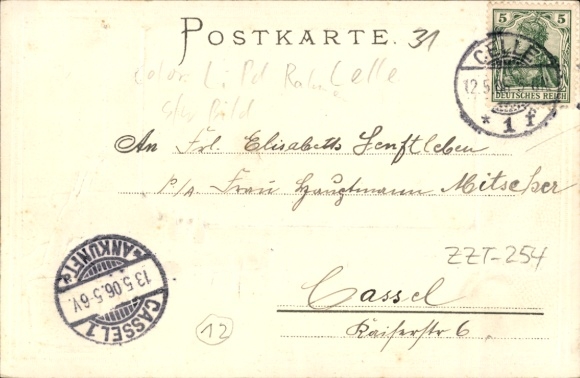 POSTKARTE. 31
5 5
DEUTSCHES REICH
CELLE
12.5.06
* 1 f
Celle
Bild
An Frl. Elisabeth Senftleben
p/A. Frau Hauptmann Mitscher
ZZT-254
Cassel
Kaiserstr 6.
12
ANKUNFT
13.5.06.5-6V.
CASSEL 1